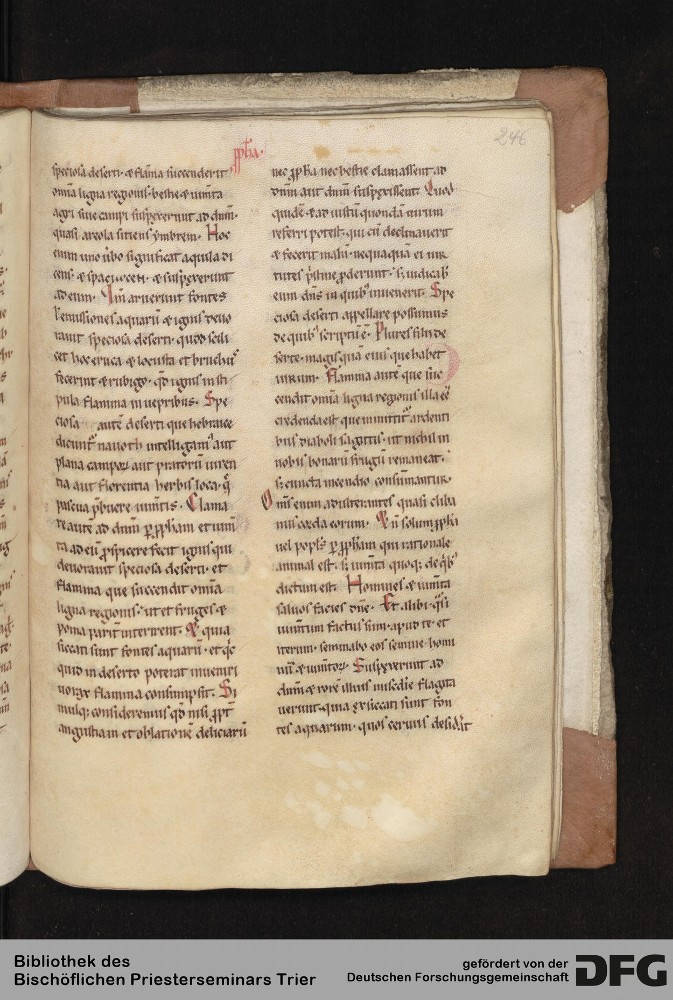 246
ꝓph̄a.
speciosa deserti. & flāma succenderit
omīa ligna regionis. bestie & iumīta
agri siue campi suspexerunt ad dn̄m.
quasi areola sitiens ymbrem. Hoc
enim uno ūbo significat aquila di
cens. &
& suspexerunt
ad eum. Qm̄ aruerunt fontes
ł emissiones aquarū & ignis deuo
rauit speciosa deserti. quod scili
cet hoc eruca & locusta et bruchus
fecerint & rubigo. qđ ignis in sti
pula flamma in uepribus. Spe
ciosa autē deserti que hebraice
dicunt᷑ nauoth intelligam᷒ aut
plana campoꝝ aut pratorū uiren
tia aut florentia herbis loca. q̄
pascua p̄buere iumītis. Clama
re autē ad dn̄m ꝑ ꝓph̄am et iumī
ta ad eū ꝓspicere fecit ignis qui
deuorauit speciosa deserti. et
flamma que succendit omīa
ligna regionis. ut et fruges &
poma parit᷑ interirent. Et quia
siccati sunt fontes aquarū. et qc̄
quid in deserto poterat inueniri
uorax flamma consumpsit. Si
mulq; consideremus qđ nisi ꝓpt᷑
angustiam et oblationē deliciarū
nec ꝓph̄a nec bestie clamassent ad
dn̄m aut dn̄m suspexissent. Quod
quidē & ad iustū quondā uirum
referri potest. qui cū declinauerit
& fecerit malū. nequaquā ei uir
tutes p̄stine ꝓderunt. s; iudicab᷑
eum dn̄s in quib᷒ inuenerit. Spe
ciosa deserti appellare possumus
de quib᷒ scriptū ē. Plures filii de
serte. magis quā eius que habet
uirum. Flamma autē que suc
cendit omīa ligna regionis illa eē
credenda est que inmittit᷑ ardenti
bus diaboli sagittis. ut nichil in
nobis bonarū frugū remaneat.
s; cuncta incendio consumantur.
Om̄s enim adulterantes quasi cliba
nus corda eorum. Et n̄ solum ꝓph̄a
uel popl̄s ꝑ ꝓph̄am qui rationale
animal est. s; iumīta quoq; de q̄b᷒
dictum est. Homines & iumīta
saluos facies dn̄e. Et alibi. q̄si
iumītum factus sum. apud te. et
iterum. seminabo eos semine homi
nū & iumītoꝝ. Suspexerunt ad
dn̄m & rorē illius mīsc̄die flagita
uerunt. quia exsiccati sunt fon
tes aquarum. quos ceruus desid᷑at
Bibliothek des
Bischöflichen Priesterseminars Trier
gefördert von der
Deutschen Forschungsgemeinschaft
DFG